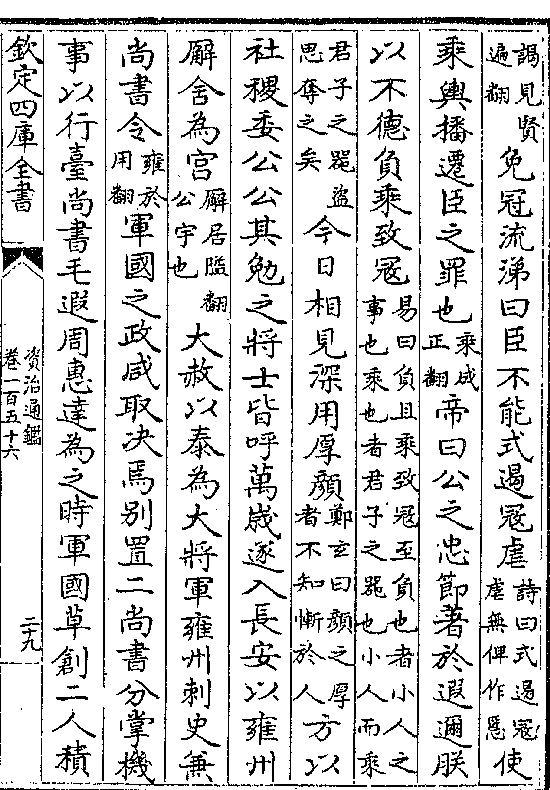 謁見賢遍翻免冠流涕曰臣不能式遏寇虐詩曰式遏寇虐無俾作慝使
乘輿播遷臣之罪也乘成正翻帝曰公之忠節著於遐邇朕
以不德負乘致寇易曰負且乘致寇至負也者小人之事也乘也者君子之器也小人而乘
君子之器盜思奪之矣今日相見深用厚顔鄭玄曰顔之厚者不知慚於人方以
社稷委公公其勉之將士皆呼萬嵗遂入長安以雍州
廨舍為宮廨居隘翻公宇也大赦以泰為大將軍雍州刺史兼
尚書令雍於用翻軍國之政咸取决焉别置二尚書分掌機
事以行臺尚書毛遐周惠達為之時軍國草創二人積
欽定四庫全書
資治通鑑
卷一百五十六
二十九